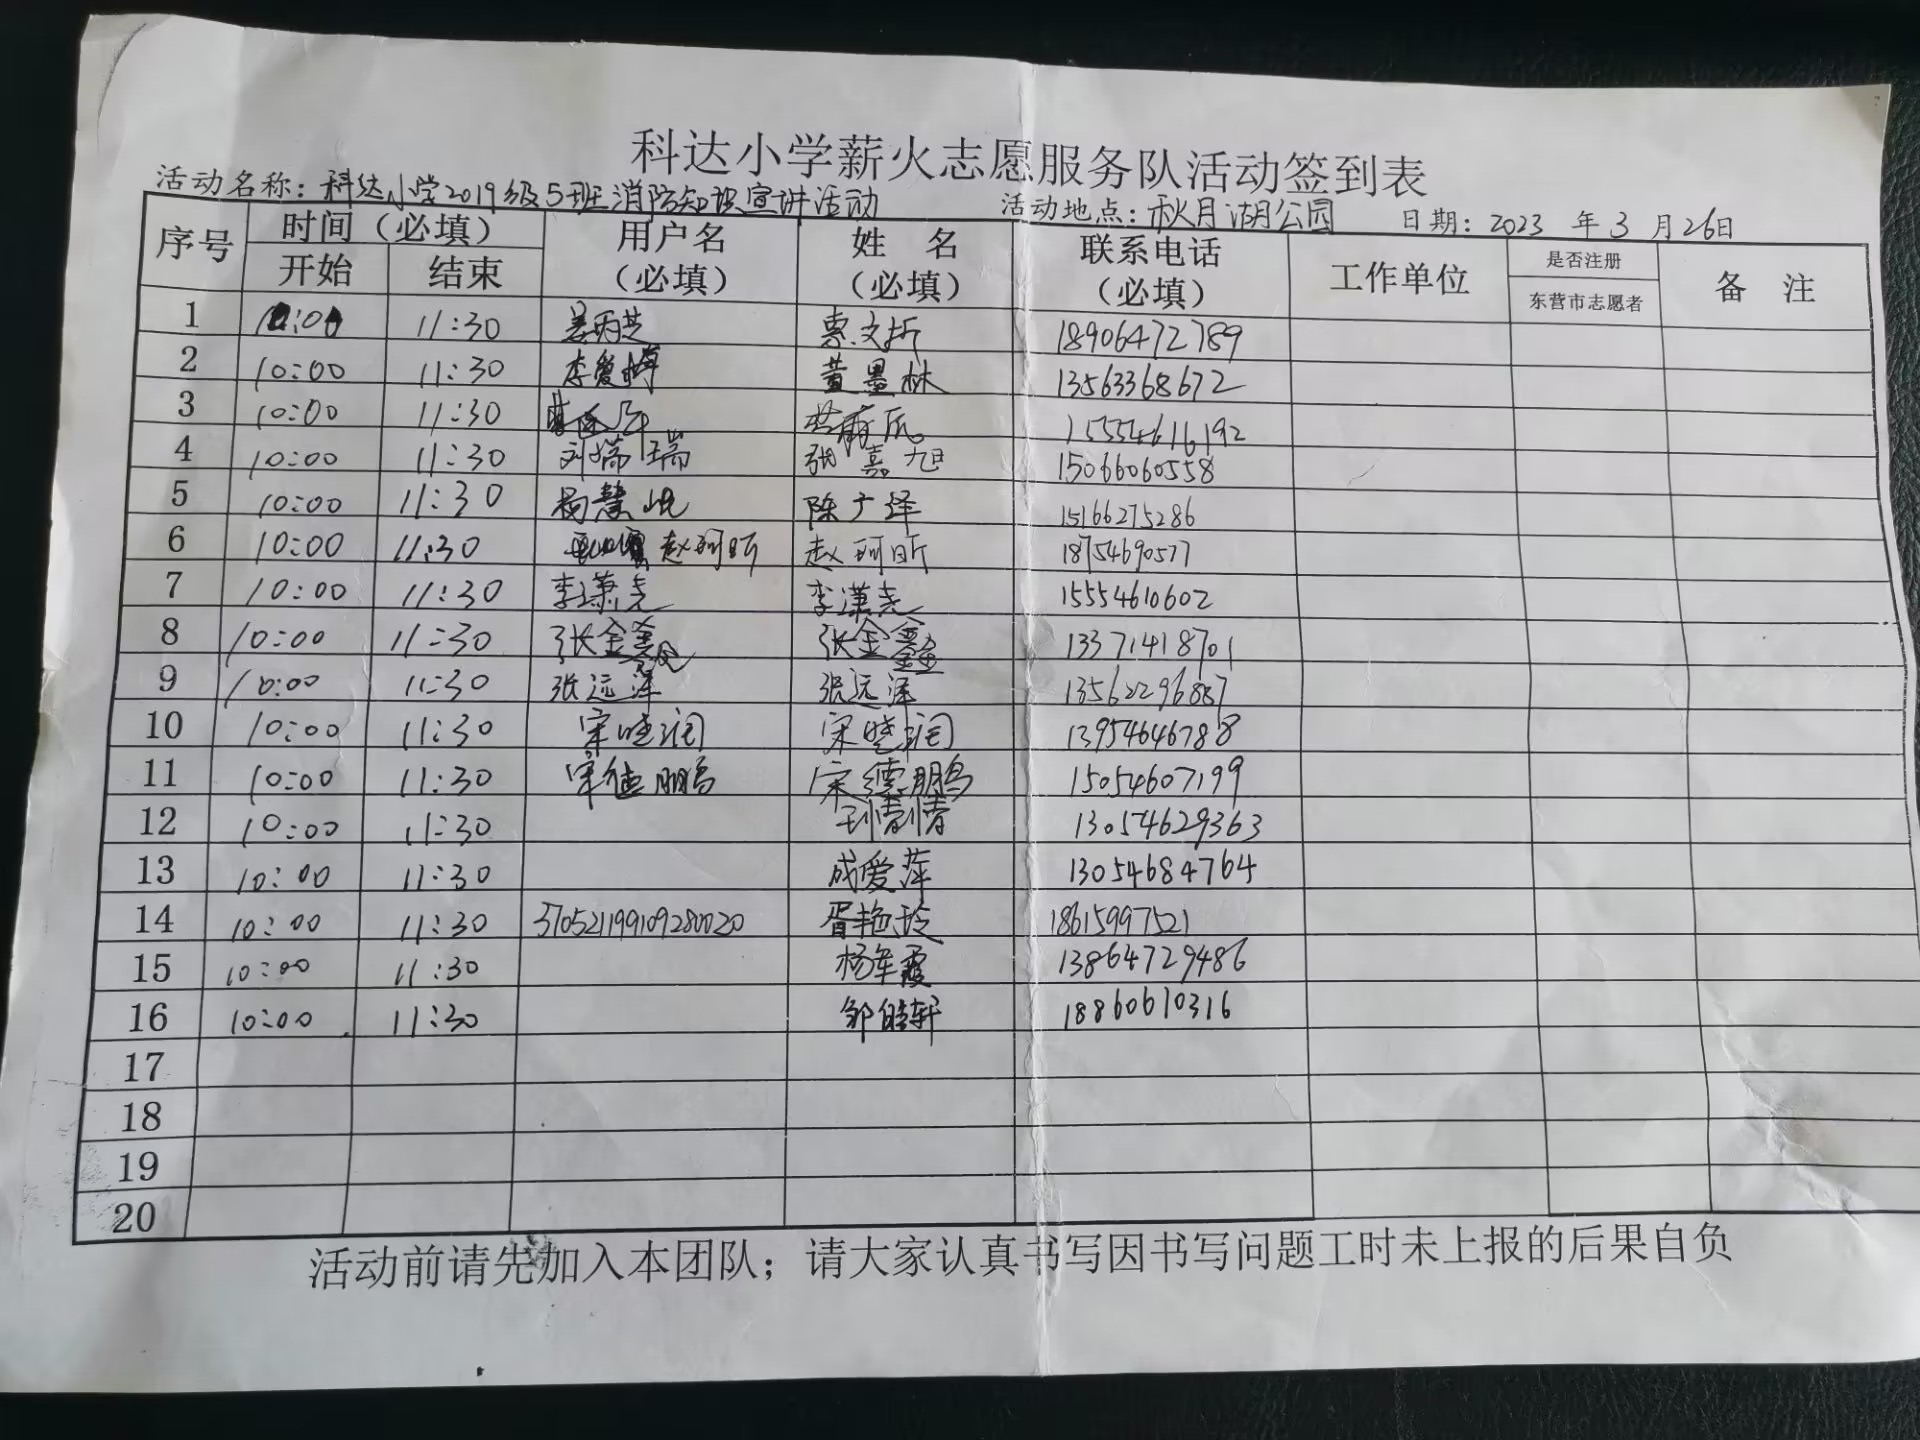 科达小学薪火志愿服务队活动签到表
活动名称：科达小学2019级5班消防知识宣讲活动 活动地点：秋月湖公园 日期：2023 年 3 月 26日
序号 时间（必填） 用户名（必填） 姓 名（必填） 联系电话（必填） 工作单位 是否注册 备 注
开始 结束 东营市志愿者
1 11:30 18906472789
2 10:00 11:30 李爱 黄墨林 13563368672
3 10:00 11:30 15554616192
4 10:00 11:30 刘瑞瑞 张嘉旭 15066060558
5 10:00 11:30 杨慧 陈广泽 15166275286
6 10:00 11:30 赵珂昕 赵珂昕 18754690577
7 10:00 11:30 李潇尧 李潇尧 15554610602
8 10:00 11:30 张金鑫 张金鑫 13371418701
9 10:00 11:30 张远泽 张远泽 13562296887
10 10:00 11:30 宋晓润 宋晓润 13954646788
11 10:00 11:30 宋德鹏 宋德鹏 15054607199
12 10:00 11:30 13054629363
13 10:00 11:30 成爱萍 13054684764
14 10:00 11:30 370521199109280020 胥艳玲 18615997521
15 10:00 11:30 杨军霞 13864729486
16 10:00 11:30 邹皓轩 18860610316
17
18
19
20
活动前请先加入本团队；请大家认真书写因书写问题工时未上报的后果自负